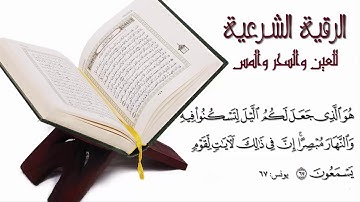 الرقية الشرعية
للعين والسحر والمس
هُوَ ٱلَّذِى جَعَلَ لَكُمُ ٱلَّيْلَ لِتَسْكُنُوا۟ فِيهِ
وَٱلنَّهَارَ مُبْصِرًا ۚ إِنَّ فِى ذَٰلِكَ لَـَٔايَـٰتٍ لِّقَوْمٍ
يَسْمَعُونَ ٦٧ يونس: ٦٧